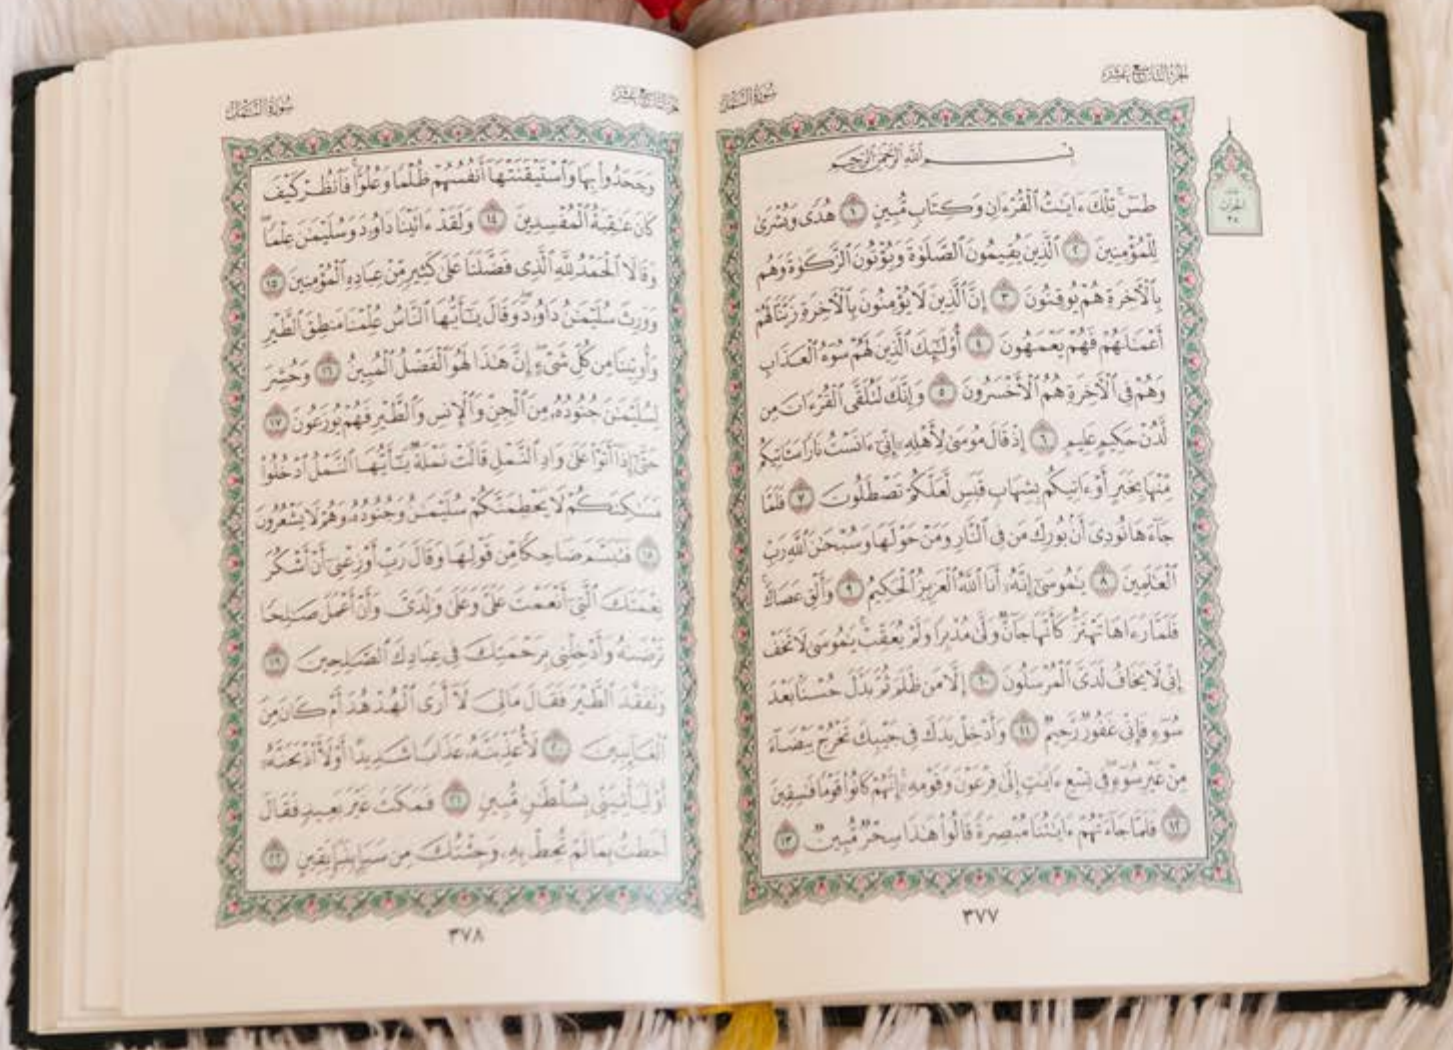 الجزء التاسع عشر
سورة النمل
بسم الله الرحمن الرحيم
طسٓ تِلْكَ ءَايَٰتُ ٱلْقُرْءَانِ وَكِتَابٍ مُّبِينٍ ١ هُدًى وَبُشْرَىٰ
لِلْمُؤْمِنِينَ ٢ ٱلَّذِينَ يُقِيمُونَ ٱلصَّلَوٰةَ وَيُؤْتُونَ ٱلزَّكَوٰةَ وَهُم
بِٱلْءَاخِرَةِ هُمْ يُوقِنُونَ ٣ إِنَّ ٱلَّذِينَ لَا يُؤْمِنُونَ بِٱلْءَاخِرَةِ زَيَّنَّا لَهُمْ
أَعْمَٰلَهُمْ فَهُمْ يَعْمَهُونَ ٤ أُوْلَٰٓئِكَ ٱلَّذِينَ لَهُمْ سُوٓءُ ٱلْعَذَابِ
وَهُمْ فِى ٱلْءَاخِرَةِ هُمُ ٱلْأَخْسَرُونَ ٥ وَإِنَّكَ لَتُلَقَّى ٱلْقُرْءَانَ مِن
لَّدُنْ حَكِيمٍ عَلِيمٍ ٦ إِذْ قَالَ مُوسَىٰ لِأَهْلِهِۦٓ إِنِّىٓ ءَانَسْتُ نَارًا سَـَٔاتِيكُم
مِّنْهَا بِخَبَرٍ أَوْ ءَاتِيكُم بِشِهَابٍ قَبَسٍ لَّعَلَّكُمْ تَصْطَلُونَ ٧ فَلَمَّا
جَآءَهَا نُودِىَ أَنۢ بُورِكَ مَن فِى ٱلنَّارِ وَمَنْ حَوْلَهَا وَسُبْحَٰنَ ٱللَّهِ رَبِّ
ٱلْعَٰلَمِينَ ٨ يَٰمُوسَىٰٓ إِنَّهُۥٓ أَنَا ٱللَّهُ ٱلْعَزِيزُ ٱلْحَكِيمُ ٩ وَأَلْقِ عَصَاكَ
فَلَمَّا رَءَاهَا تَهْتَزُّ كَأَنَّهَا جَآنٌّ وَلَّىٰ مُدْبِرًا وَلَمْ يُعَقِّبْ يَٰمُوسَىٰ لَا تَخَفْ
إِنِّى لَا يَخَافُ لَدَىَّ ٱلْمُرْسَلُونَ ١٠ إِلَّا مَن ظَلَمَ ثُمَّ بَدَّلَ حُسْنًۢا بَعْدَ
سُوٓءٍ فَإِنِّى غَفُورٌ رَّحِيمٌ ١١ وَأَدْخِلْ يَدَكَ فِى جَيْبِكَ تَخْرُجْ بَيْضَآءَ
مِنْ غَيْرِ سُوٓءٍ فِى تِسْعِ ءَايَٰتٍ إِلَىٰ فِرْعَوْنَ وَقَوْمِهِۦٓ إِنَّهُمْ كَانُوا۟ قَوْمًا فَٰسِقِينَ
١٢ فَلَمَّا جَآءَتْهُمْ ءَايَٰتُنَا مُبْصِرَةً قَالُوا۟ هَٰذَا سِحْرٌ مُّبِينٌ ١٣
٣٧٧
الحزب
٣٨
الجزء التاسع عشر
سورة النمل
وَجَحَدُوا۟ بِهَا وَٱسْتَيْقَنَتْهَآ أَنفُسُهُمْ ظُلْمًا وَعُلُوًّا فَٱنظُرْ كَيْفَ
كَانَ عَٰقِبَةُ ٱلْمُفْسِدِينَ ١٤ وَلَقَدْ ءَاتَيْنَا دَاوُۥدَ وَسُلَيْمَٰنَ عِلْمًا
وَقَالَا ٱلْحَمْدُ لِلَّهِ ٱلَّذِى فَضَّلَنَا عَلَىٰ كَثِيرٍ مِّنْ عِبَادِهِ ٱلْمُؤْمِنِينَ ١٥
وَوَرِثَ سُلَيْمَٰنُ دَاوُۥدَ وَقَالَ يَٰٓأَيُّهَا ٱلنَّاسُ عُلِّمْنَا مَنطِقَ ٱلطَّيْرِ
وَأُوتِينَا مِن كُلِّ شَىْءٍ إِنَّ هَٰذَا لَهُوَ ٱلْفَضْلُ ٱلْمُبِينُ ١٦ وَحُشِرَ
لِسُلَيْمَٰنَ جُنُودُهُۥ مِنَ ٱلْجِنِّ وَٱلْإِنسِ وَٱلطَّيْرِ فَهُمْ يُوزَعُونَ ١٧
حَتَّىٰٓ إِذَآ أَتَوْا۟ عَلَىٰ وَادِ ٱلنَّمْلِ قَالَتْ نَمْلَةٌ يَٰٓأَيُّهَا ٱلنَّمْلُ ٱدْخُلُوا۟
مَسَٰكِنَكُمْ لَا يَحْطِمَنَّكُمْ سُلَيْمَٰنُ وَجُنُودُهُۥ وَهُمْ لَا يَشْعُرُونَ
١٨ فَتَبَسَّمَ ضَاحِكًا مِّن قَوْلِهَا وَقَالَ رَبِّ أَوْزِعْنِىٓ أَنْ أَشْكُرَ
نِعْمَتَكَ ٱلَّتِىٓ أَنْعَمْتَ عَلَىَّ وَعَلَىٰ وَٰلِدَىَّ وَأَنْ أَعْمَلَ صَٰلِحًا
تَرْضَىٰهُ وَأَدْخِلْنِى بِرَحْمَتِكَ فِى عِبَادِكَ ٱلصَّٰلِحِينَ ١٩
وَتَفَقَّدَ ٱلطَّيْرَ فَقَالَ مَالِىَ لَآ أَرَى ٱلْهُدْهُدَ أَمْ كَانَ مِنَ
ٱلْغَآئِبِينَ ٢٠ لَأُعَذِّبَنَّهُۥ عَذَابًا شَدِيدًا أَوْ لَأَا۟ذْبَحَنَّهُۥٓ
أَوْ لَيَأْتِيَنِّى بِسُلْطَٰنٍ مُّبِينٍ ٢١ فَمَكَثَ غَيْرَ بَعِيدٍ فَقَالَ
أَحَطتُ بِمَا لَمْ تُحِطْ بِهِۦ وَجِئْتُكَ مِن سَبَإٍۭ بِنَبَإٍ يَقِينٍ ٢٢
٣٧٨